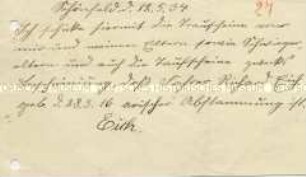 Schönfeld d. 18.5.34
24
Ich schicke hiermit die Taufscheine von
mir und meinen Eltern sowie Schwieger
eltern und auch die Taufscheine zwecks
Bescheinigung daß Richard
geb. d. 28.3.16 arischer Abstammung ist.
Eich.